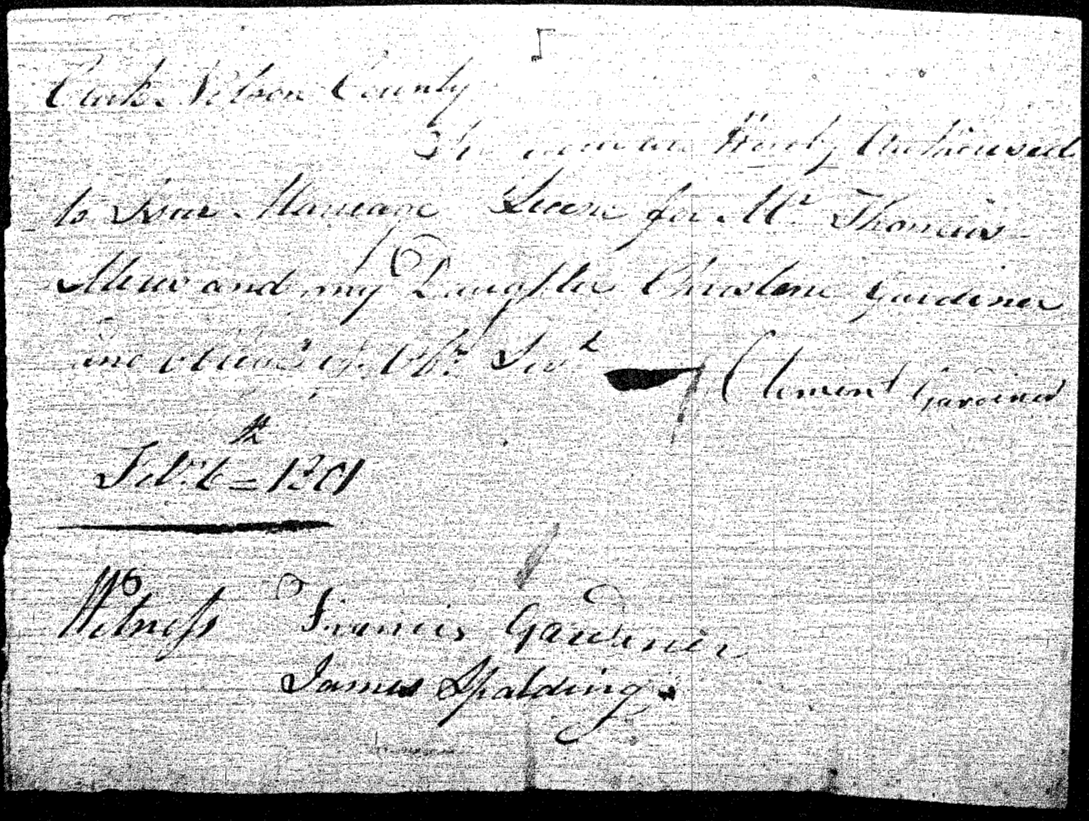 Clerk Nelson County
Hereby Authorised
to Issue Marriage License for Mr Thomas
and my Daughter Christene Gardiner
and Obt Servt Clement Gardiner
Feb. 6th 1801
Witness Francis Gardiner
James Spalding